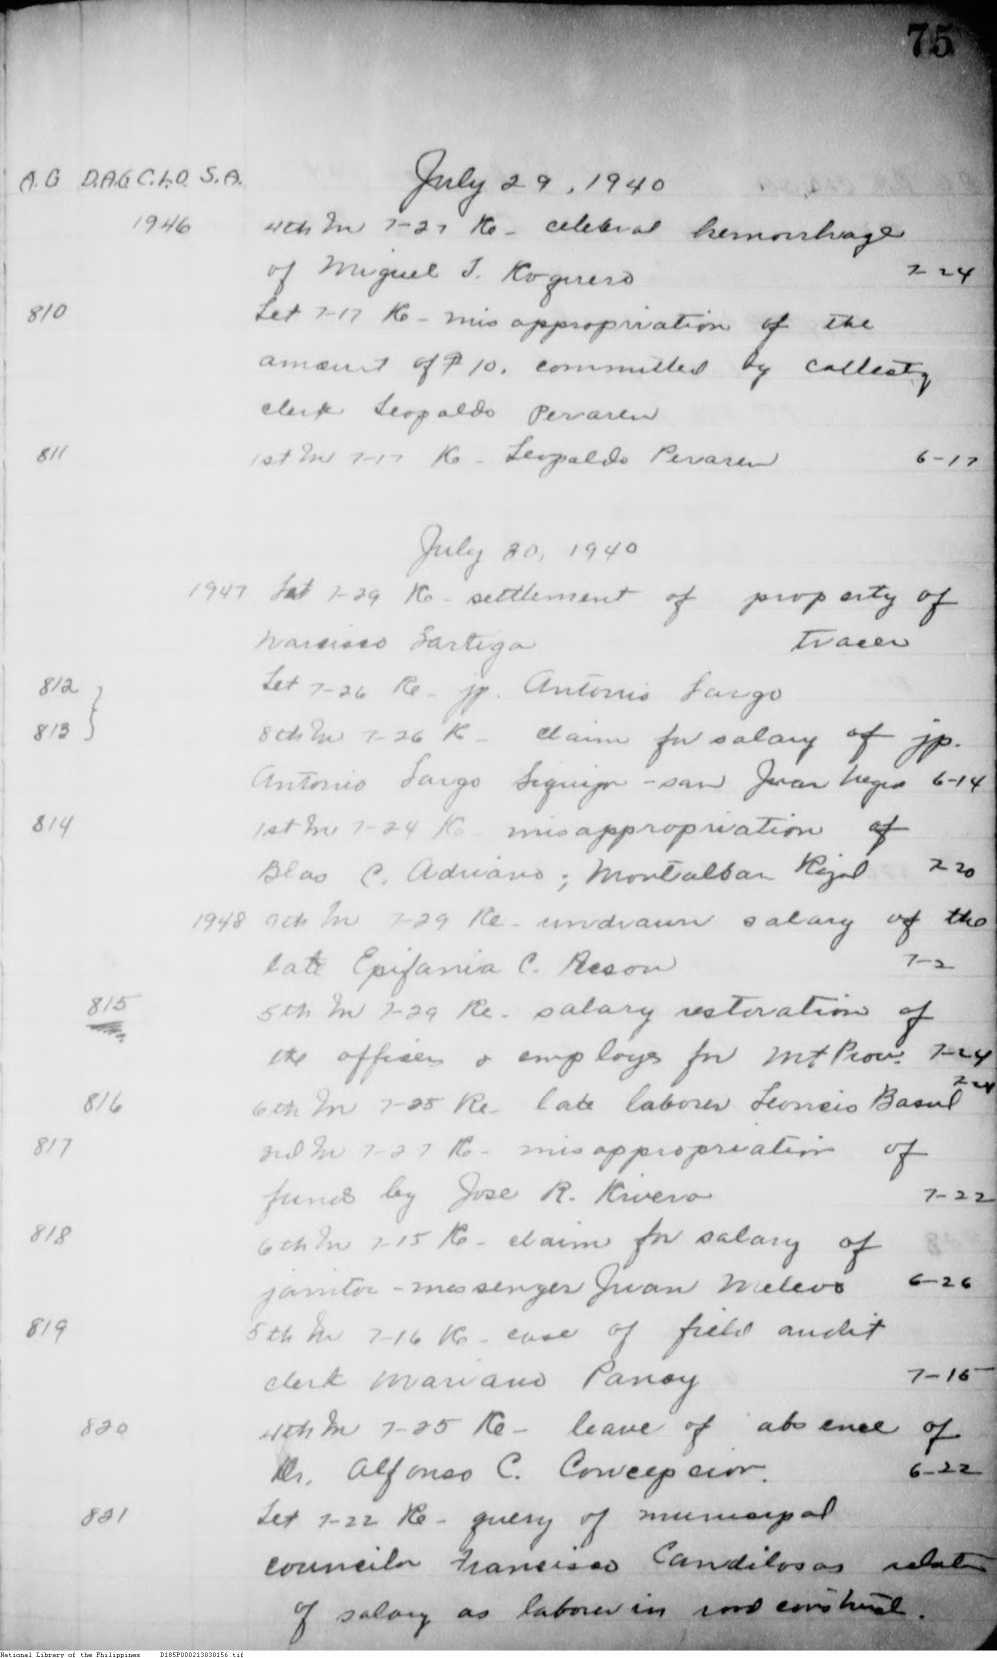 75
A.G D.A.G C.L.O. S.A. July 29, 1940
1946 4th In 7-27 Re - celebral hemorrhage
of Miguel T. Roquero 7-24
810 Let 7-17 Re - misappropriation of the
amount of ₱10. committed by
clerk Leopoldo Pervaren
811 1st In 7-17 Re - Leopoldo Pervaren 6-17
July 30, 1940
1947 Let 7-29 Re - settlement of property of
Narcisco Lartiga tracer
812 Let 7-26 Re - jp. Antonio Largo
813 8th In 7-26 Re - claim for salary of jp.
Antonio Largo Siquijor - san Juan Negros 6-14
814 1st In 7-24 Re - misappropriation of
Blas C. Adriano; Montalban Rizal 7-20
1948 9th In 7-29 Re - undrawn salary of the
late Epifania C. 7-2
815 5th In 7-29 Re - salary restoration of
the officers & employs for Mt Prov. 7-24
816 6th In 7-25 Re - late laborer Leoncio Basul 7-24
817 2nd In 7-27 Re - misappropriation of
funds by Jose R. Rivera 7-22
818 6th In 7-15 Re - claim for salary of
janitor - messenger Juan 6-26
819 5th In 7-16 Re - case of field audit
clerk Mariano Panoy 7-15
820 4th In 7-25 Re - leave of absence of
Dr. Alfonso C. Concepcion. 6-22
821 Let 7-22 Re - query of municipal
councilor Francisco Candilosas
of salary as laborer in road
National Library of the Philippines D185P000213030156.tif